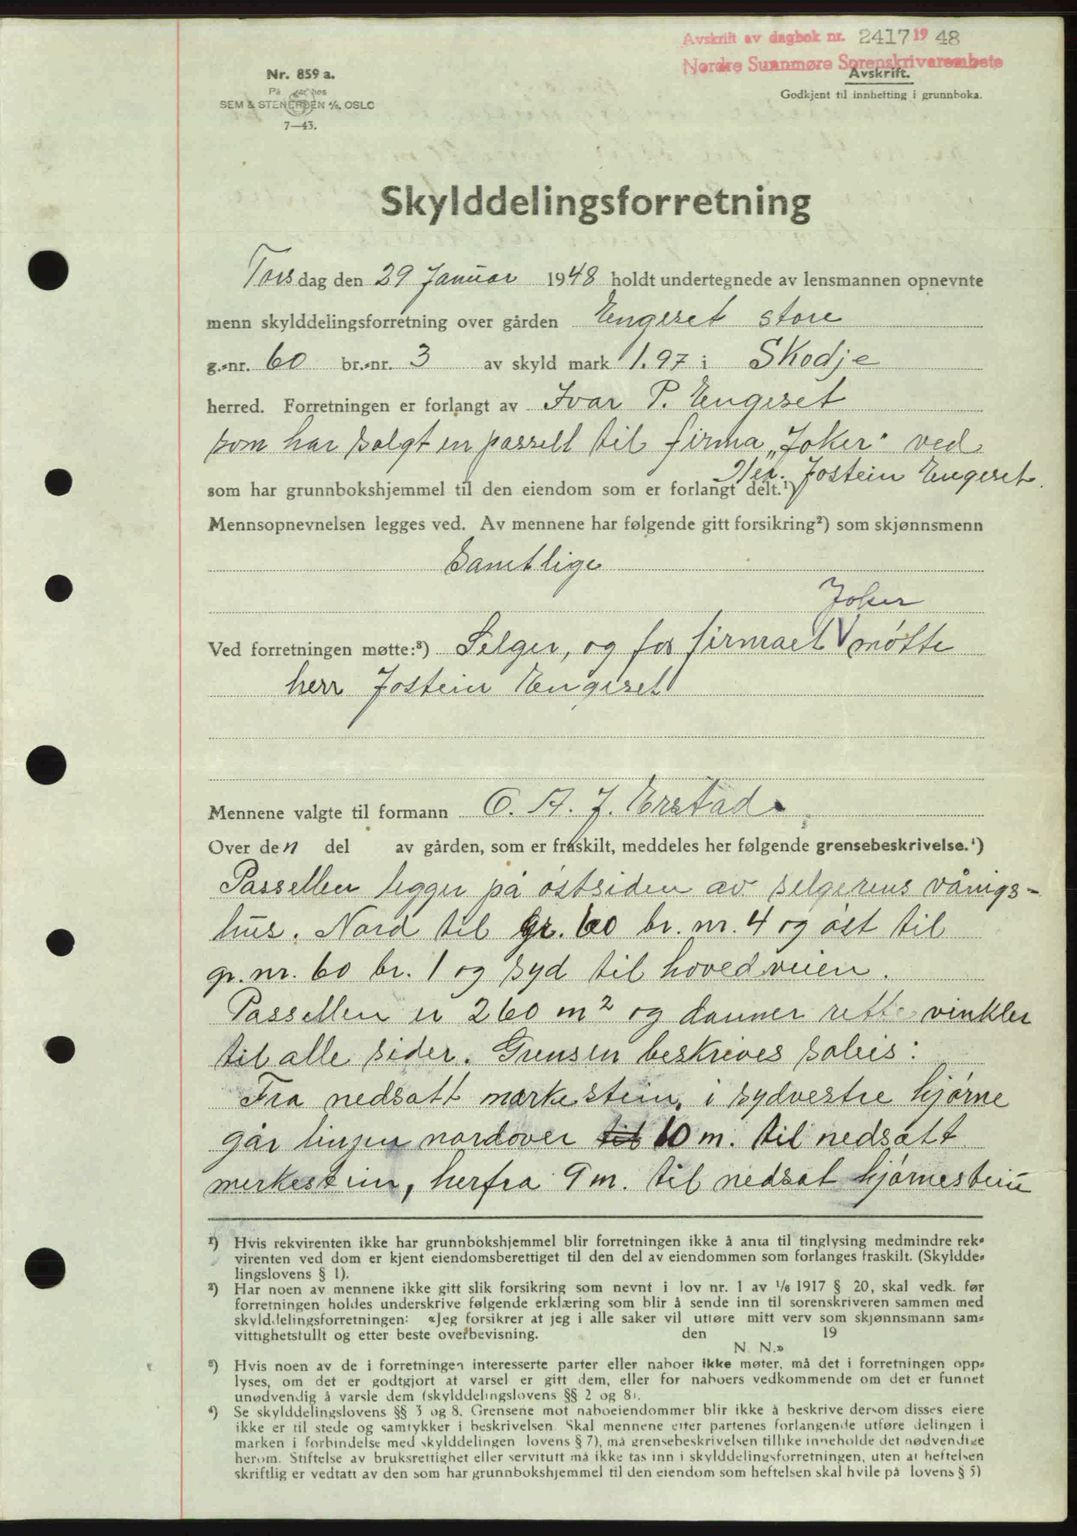 Avskrift av dagbok nr. 2417 1948
Nordre Sunnmøre Sorenskrivarembete
Nr. 859 a.
På lager hos
SEM & STENERSEN A/S, OSLO
7—43.
Avskrift.
Godkjent til innhefting i grunnboka.
Skylddelingsforretning
Torsdag den 29 Januar 1948 holdt undertegnede av lensmannen opnevnte
menn skylddelingsforretning over gården Engeset store
g.-nr. 60 br.-nr. 3 av skyld mark 1.97 i Skodje
herred. Forretningen er forlangt av Ivar P. Engeset
som har solgt en passell til firma „Joker" ved
Jostein Engeset.
som har grunnbokshjemmel til den eiendom som er forlangt delt.¹)
Mennsopnevnelsen legges ved. Av mennene har følgende gitt forsikring²) som skjønnsmenn
Samtlige
Joker
Ved forretningen møtte:³) Selger, og for firmaet V møtte
herr Jostein Engeset
Mennene valgte til formann O. A. J. Erstad.
Over den del av gården, som er fraskilt, meddeles her følgende grensebeskrivelse.⁴)
Passellen legger på østsiden av selgerens vånigs-
hus. Nord til gr. 60 br. nr. 4 og øst til
gr. nr. 60 br. 1 og syd til hovedveien.
Passellen er 260 m² og danner rette vinkler
til alle sider. Grensen beskrives soleis:
Fra nedsatt merkestein, i sydvestre hjørne
går linjen nordover til 10 m. til nedsatt
merkestein, herfra 9 m. til nedsat hjørnestein
¹) Hvis rekvirenten ikke har grunnbokshjemmel blir forretningen ikke å anta til tinglysing medmindre rek-
virenten ved dom er kjent eiendomsberettiget til den del av eiendommen som forlanges fraskilt. (Skyldde-
lingslovens § 1).
²) Har noen av mennene ikke gitt slik forsikring som nevnt i lov nr. 1 av 1/6 1917 § 20, skal vedk. før
forretningen holdes underskrive følgende erklæring som blir å sende inn til sorenskriveren sammen med
skylddelingsforretningen: «Jeg forsikrer at jeg i alle saker vil utføre mitt verv som skjønnsmann sam-
vittighetsfullt og etter beste overbevisning. den 19
N. N.»
³) Hvis noen av de i forretningen interesserte parter eller naboer ikke møter, må det i forretningen opp-
lyses, om det er godtgjort at varsel er gitt dem, eller for naboers vedkommende om det er funnet
unødvendig å varsle dem (skylddelingslovens §§ 2 og 8).
⁴) Se skylddelingslovens §§ 3 og 8. Grensene mot naboeiendommer blir ikke å beskrive dersom disses eiere
ikke er til stede og samtykker i beskrivelsen. Skal mennene etter partenes forlangende utføre delingen i
marken i forbindelse med skylddelingen (lovens § 7), må grensebeskrivelsen tillike inneholde det nødvendige
herom. Stiftelse av bruksrettighet eller servitutt må ikke tas inn i skylddelingsforretningen, uten at heftelsen
skriftlig er vedtatt av den som har grunnbokshjemmel til den eiendom som heftelsen skal hvile på (lovens § 5)